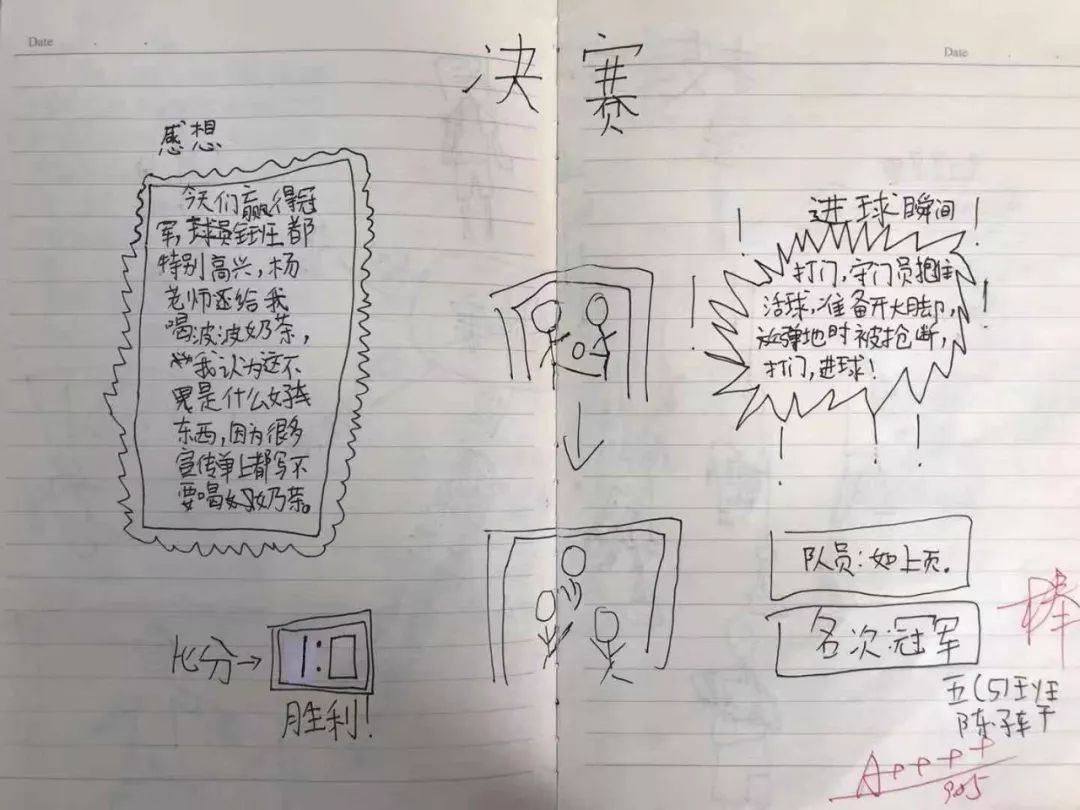 Date
Date
决赛
感想
今天们赢得冠
军,球员全班都
特别高兴,杨
老师还给我
喝波波奶茶,
我认为这不
是什么好
东西,因为很多
宣传单上都写不
要喝奶茶。
比分→
1:0
胜利!
进球瞬间
打门,守门员抱住
活球,准备开大脚,
放弹地时被抢断,
打门,进球!
队员:如上页.
名次:冠军
棒
五(5)班
陈子轩
A++++
905